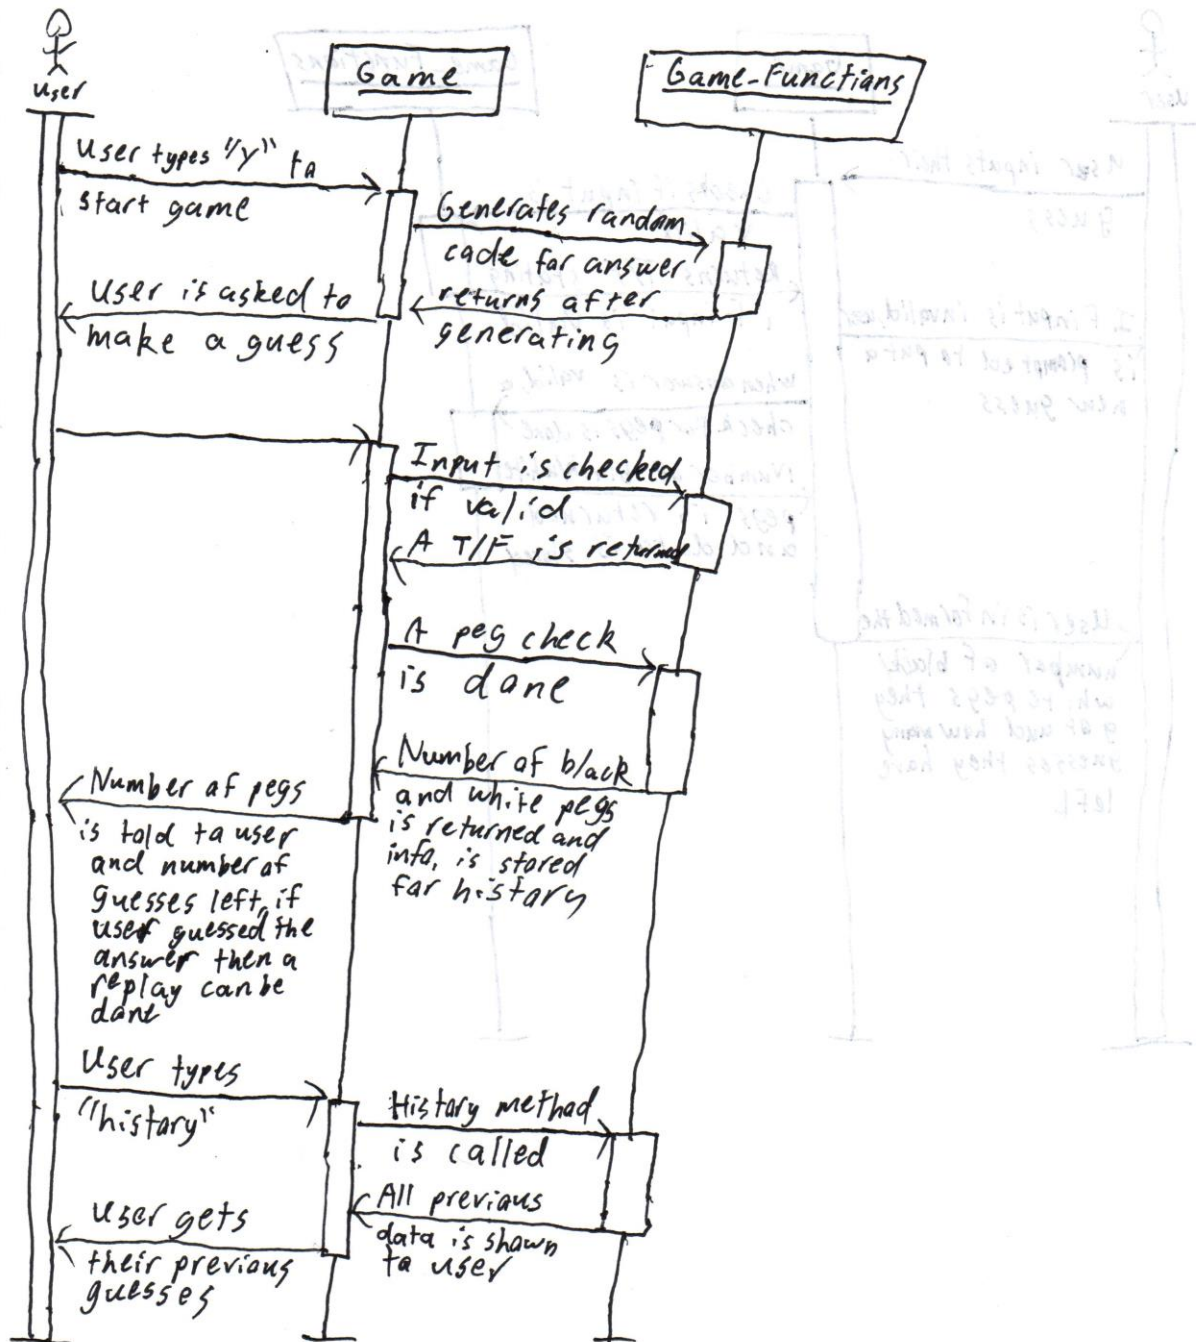 User
Game
Game-Functions
User types "y" to
start game
Generates random
code for answer
returns after
generating
User is asked to
make a guess
Input is checked
if valid
A T/F is returned
A peg check
is done
Number of black
and white pegs
is returned and
info, is stored
for history
Number of pegs
is told to user
and number of
guesses left, if
user guessed the
answer then a
replay can be
done
User types
"history"
History method
is called
All previous
data is shown
to user
User gets
their previous
guesses